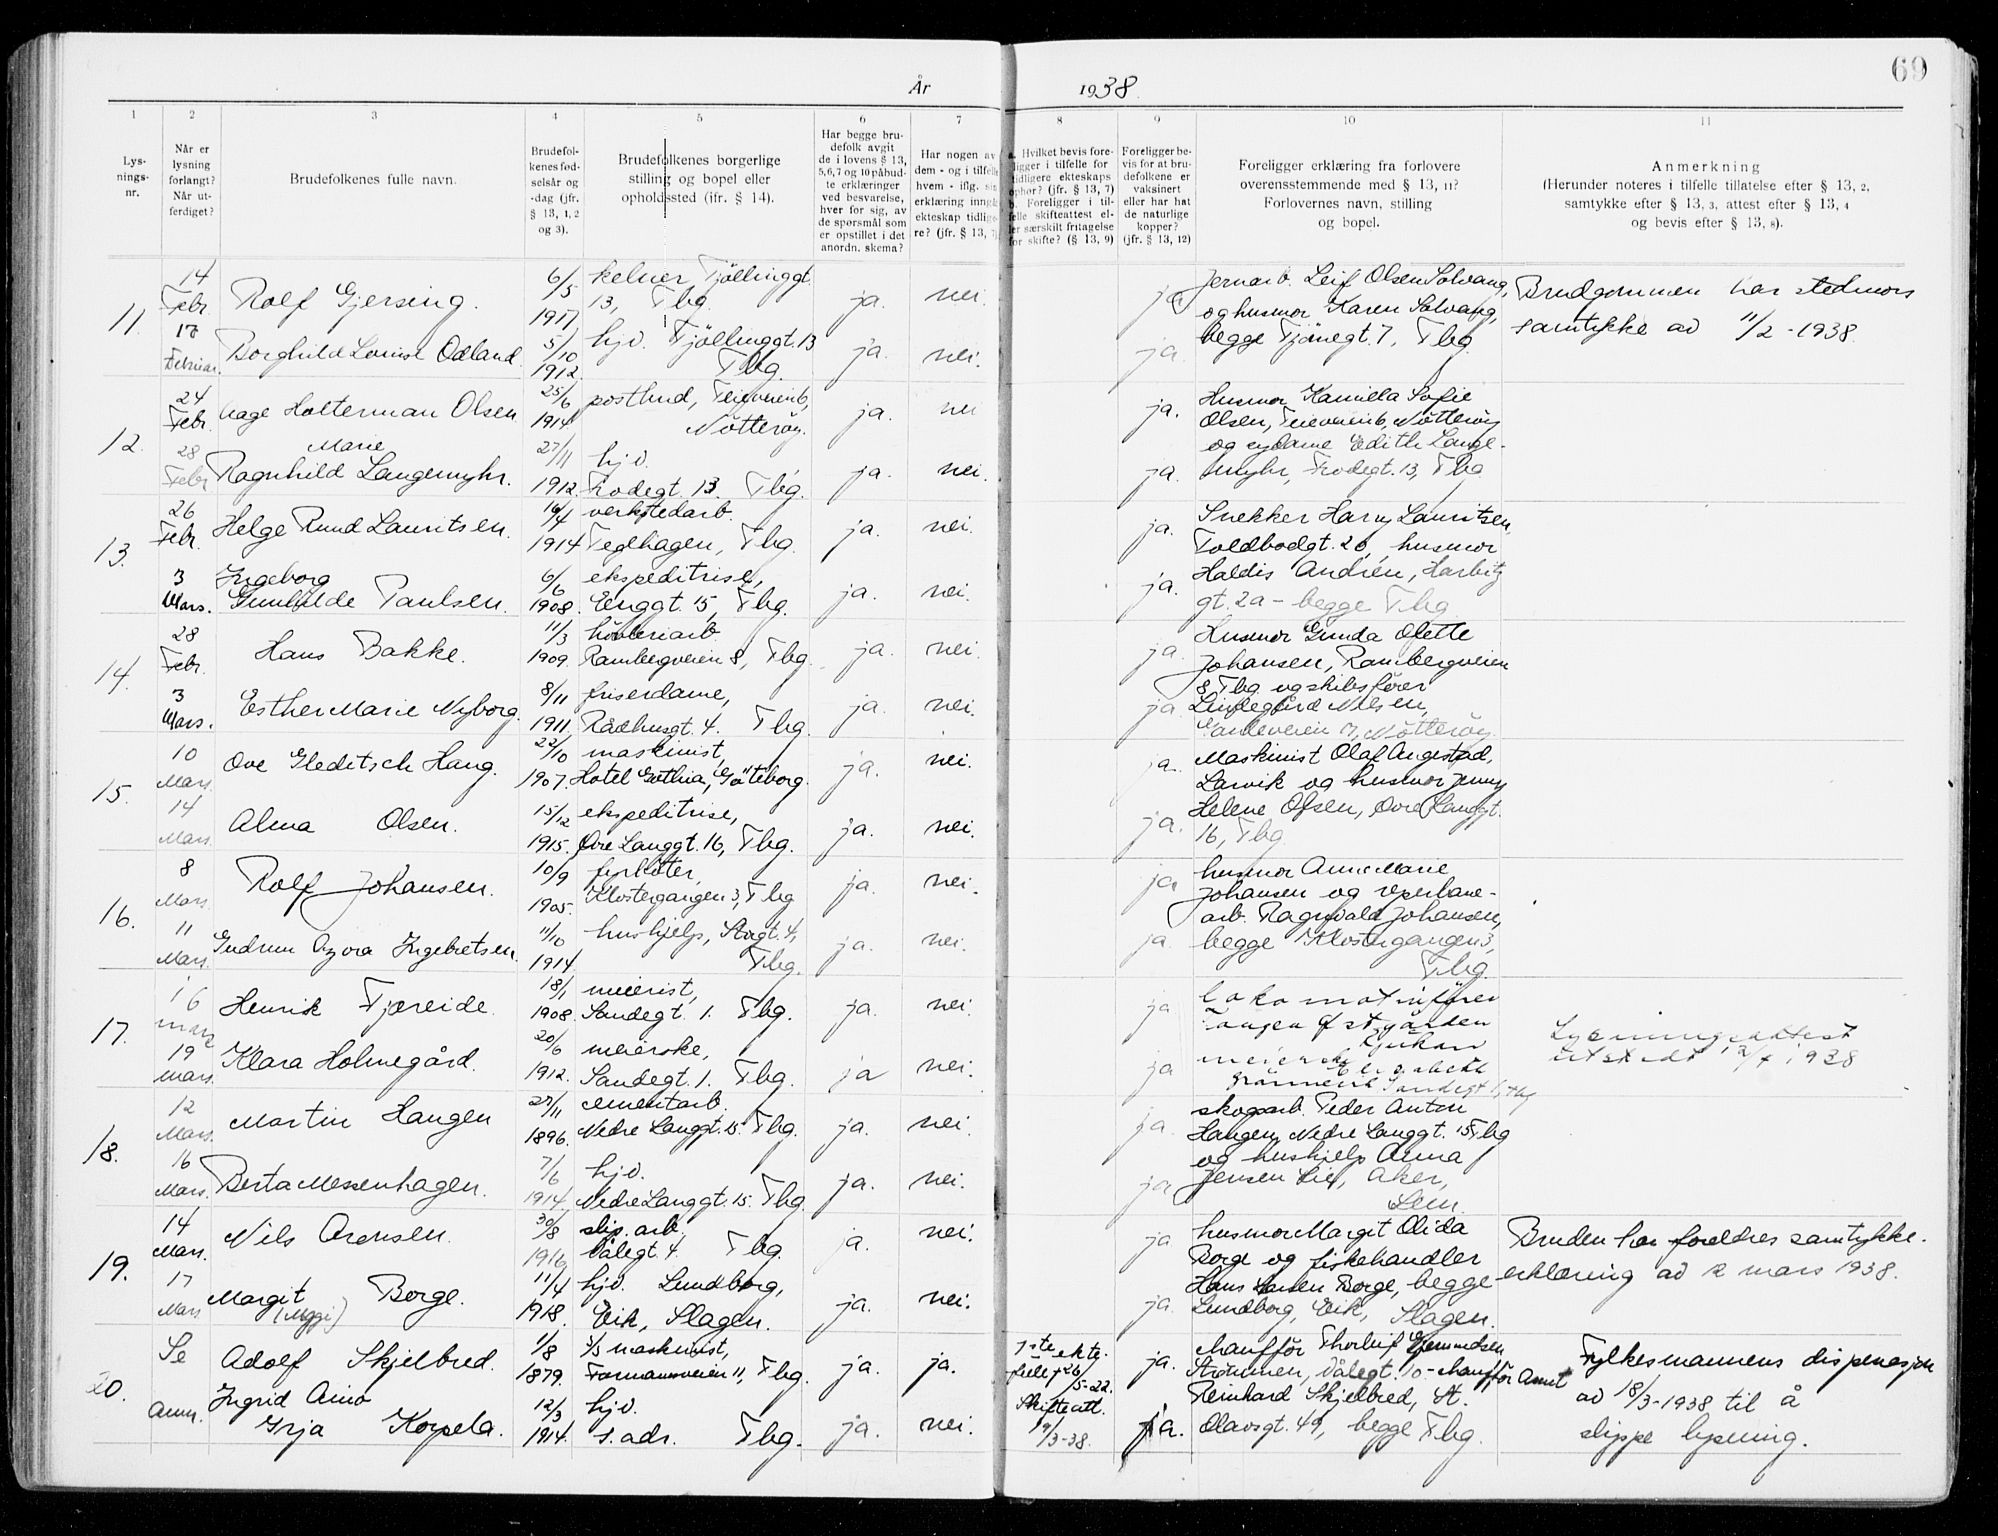 69
År 1938.
1 2 3 4 5 6 7 8 9 10 11
Lysningsnr.
Når er lysning forlangt? Når utferdiget?
Brudefolkenes fulle navn.
Brudefolkenes fødselsår og -dag (jfr. § 13, 1, 2 og 3).
Brudefolkenes borgerlige stilling og bopel eller opholdssted (jfr. § 14).
Har begge brudefolk avgit de i lovens § 13, 5,6,7 og 10 påbudte erklæringer ved besvarelse, hver for sig, av de spørsmål som er opstillet i det anordn. skema?
Har nogen av dem - og i tilfelle hvem - iflg. sin erklæring inngått ekteskap tidligere? (jfr. § 13, 7).
a. Hvilket bevis foreligger i tilfelle for tidligere ekteskaps ophør? (jfr. § 13, 7)
b. Foreligger i tilfelle skifteattest eller særskilt fritagelse for skifte? (§ 13, 9)
Foreligger bevis for at brudefolkene er vaksinert eller har hat de naturlige kopper? (jfr. § 13, 12)
Foreligger erklæring fra forlovere overensstemmende med § 13, 11? Forlovernes navn, stilling og bopel.
Anmerkning
(Herunder noteres i tilfelle tillatelse efter § 13, 2, samtykke efter § 13, 3, attest efter § 13, 4 og bevis efter § 13, 8).
11. 14 Febr. Rolf Gjersing. 6/5 1917 kelner Tjøllinggt. 13, Tbg. ja. nei. ja
Jernarb. Leif Olsen Solvang,
og husmor Karen Solvang,
begge Tjønegt. 7, Tbg.
Brudgommen har stedmors
samtykke av 11/2 - 1938.
17 Februar. Borghild Louise Odland. 5/10 1912. hjv. Tjøllinggt. 13 Tbg. ja. nei. ja.
12. 24 Febr. Aage Holterman Olsen 25/6 1914 postbud, Teieveien 6, Nøtterøy. ja. nei ja.
Husmor Kamilla Sofie
Olsen, Teieveien 6, Nøtterøy
og sydame Edith Lange-
myhr, Frodegt. 13, Tbg.
28 Febr Ragnhild Marie Langemyhr. 27/11 1912. hjv. Frodegt. 13. Tbg. ja. nei. ja.
13. 26 Febr. Helge Rund Lauritsen. 16/4 1914 verkstedarb. Teglhagen, Tbg. ja. nei. ja.
Snekker Harry Lauritsen,
Toldbodgt. 20, husmor
Haldis Andrén, Harbitz
gt. 2a - begge Tbg
3 Mars. Ingeborg Gunhilde Paulsen. 6/6 1908. ekspeditrise, Enggt. 15, Tbg. ja. nei. ja.
14. 28 Febr. Hans Bakke. 11/3 1909. høvleriarb Rambergveien 8, Tbg. ja. nei. ja
Husmor Gunda Olette
Johansen, Rambergveien
8 Tbg og skibsfører
Lindegård Nilsen,
Nøtterøy.
3 Mars. Esther Marie Nyborg. 8/11 1911. friserdame, Rådhusgt. 4. Tbg. ja. nei. ja
15. 10 Mars. Ove Gleditsch Haug. 22/10 1907. maskinist, Hotel Gothia, Göteborg. ja. nei. ja.
Maskinist Olaf Angestad,
Larvik og husmor Jenny
Helene Olsen, Øvre Langgt.
16, Tbg
14 Mars. Alma Olsen. 15/12 1915. ekspeditrise, Øvre Langgt. 16, Tbg. ja. nei. ja.
16. 8 Mars. Rolf Johansen. 10/9 1905. fyrbøter, Klostergangen 3, Tbg ja. nei. ja
husmor Anne Marie
Johansen og reperbane-
arb. Ragnvald Johansen,
begge Klostergangen 3,
Tbg.
11 Mars. Gudrun Azora Ingebretsen. 11/10 1914 hushjelp, Storgt. 4, Tbg. ja. nei. ja.
17. 16 mars Henrik Tjøreide. 18/1 1908. meierist, Sandegt. 1. Tbg. ja. nei. ja
lokomotivfører
Rjukan
meierske Elisabeth
Sandegt 1, Tbg
Lysningsattest
utstedt 12/4 1938
19 mars Klara Holmegård. 20/6 1912. meierske, Sandegt. 1. Tbg. ja nei. ja
18. 12 Mars. Martin Haugen 27/11 1896. sementarb. Nedre Langgt. 15. Tbg. ja. nei. ja.
skogsarb. Peder Anton
Haugen, Nedre Langgt. 15 Tbg
og hushjelp Anna
Jensen Lie, Aker,
16 Mars. Berta Messenhagen. 7/6 1914. hjv. Nedre Langgt. 15. Tbg ja. nei. ja
19. 14 Mars. Nils Arensen. 30/8 1916 slip. arb. Vålegt. 4. Tbg. ja. nei. ja
husmor Margit Alida
Borge og fiskehandler
Hans Larsen Borge, begge
Lundborg, Eik, Slagen.
Bruden har foreldres samtykke-
erklæring av 2 mars 1938.
17 Mars Margit (Moggi) Borge. 11/4 1918. hjv. Lundborg, Eik, Slagen. ja. nei. ja.
20. Se Anm. Adolf Skjelbred. 1/8 1879. maskinist, Formannsveien 11, Tbg. ja. ja.
1ste ekte-
felle + 26/5-22.
Skifteatt.
19/3-38.
ja.
chauffør Thorleif Gjermundsen
Strømmen, Vålegt. 10 - chauffør Arnt
Reinhard Skjelbred, St.
Olavsgt. 49, begge Tbg.
Fylkesmannens dispensasjon
av 18/3-1938 til å
slippe lysning.
Ingrid Aino Irja Korpela. 12/3 1914. hjv. s. adr. Tbg. ja. nei. ja.